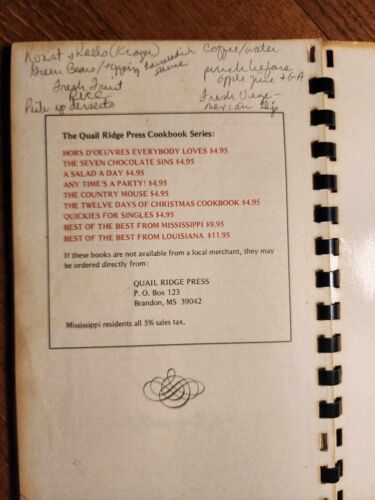 Roast & Rolls (Kroger)
Green Beans / topping Horseradish
Sauce
Fresh Fruit
Rice
Pick up desserts
Coffee/water
punch before
apple juice + G.A.
Fresh Vege -
Mexican Dip
The Quail Ridge Press Cookbook Series:
HORS D'OEUVRES EVERYBODY LOVES $4.95
THE SEVEN CHOCOLATE SINS $4.95
A SALAD A DAY $4.95
ANY TIME'S A PARTY! $4.95
THE COUNTRY MOUSE $4.95
THE TWELVE DAYS OF CHRISTMAS COOKBOOK $4.95
QUICKIES FOR SINGLES $4.95
BEST OF THE BEST FROM MISSISSIPPI $9.95
BEST OF THE BEST FROM LOUISIANA $11.95
If these books are not available from a local merchant, they may
be ordered directly from:
QUAIL RIDGE PRESS
P. O. Box 123
Brandon, MS 39042
Mississippi residents all 5% sales tax.